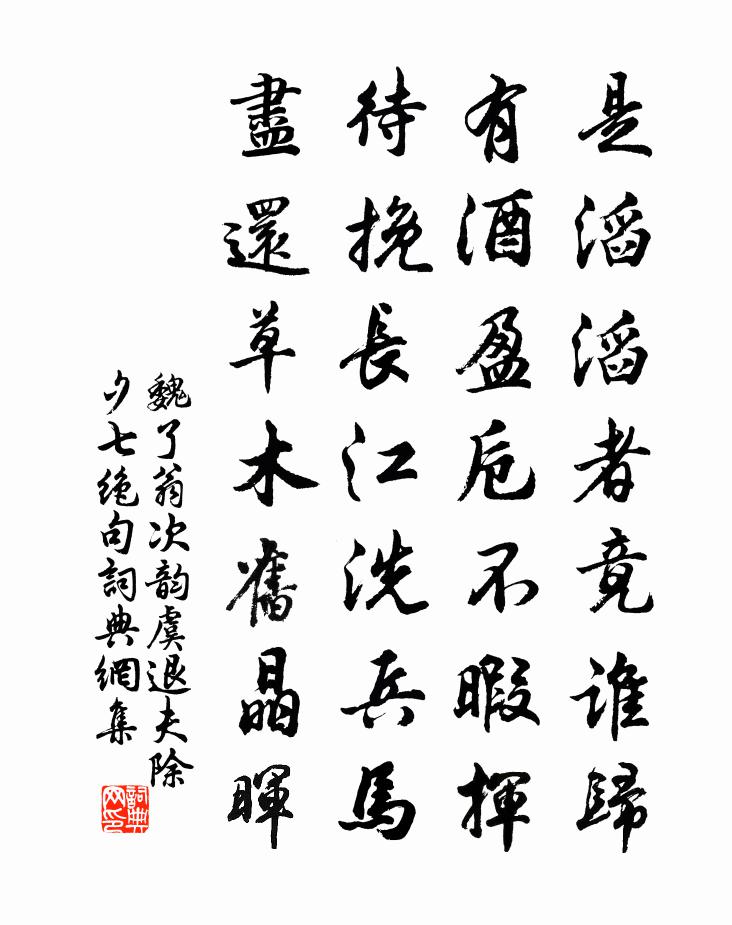 是滔滔者竟誰歸
有酒盈卮不暇揮
待挽長江洗兵馬
盡還草木舊晶暉
魏了翁次韵虞退夫除
夕七絶句詞典網集
詞典网印